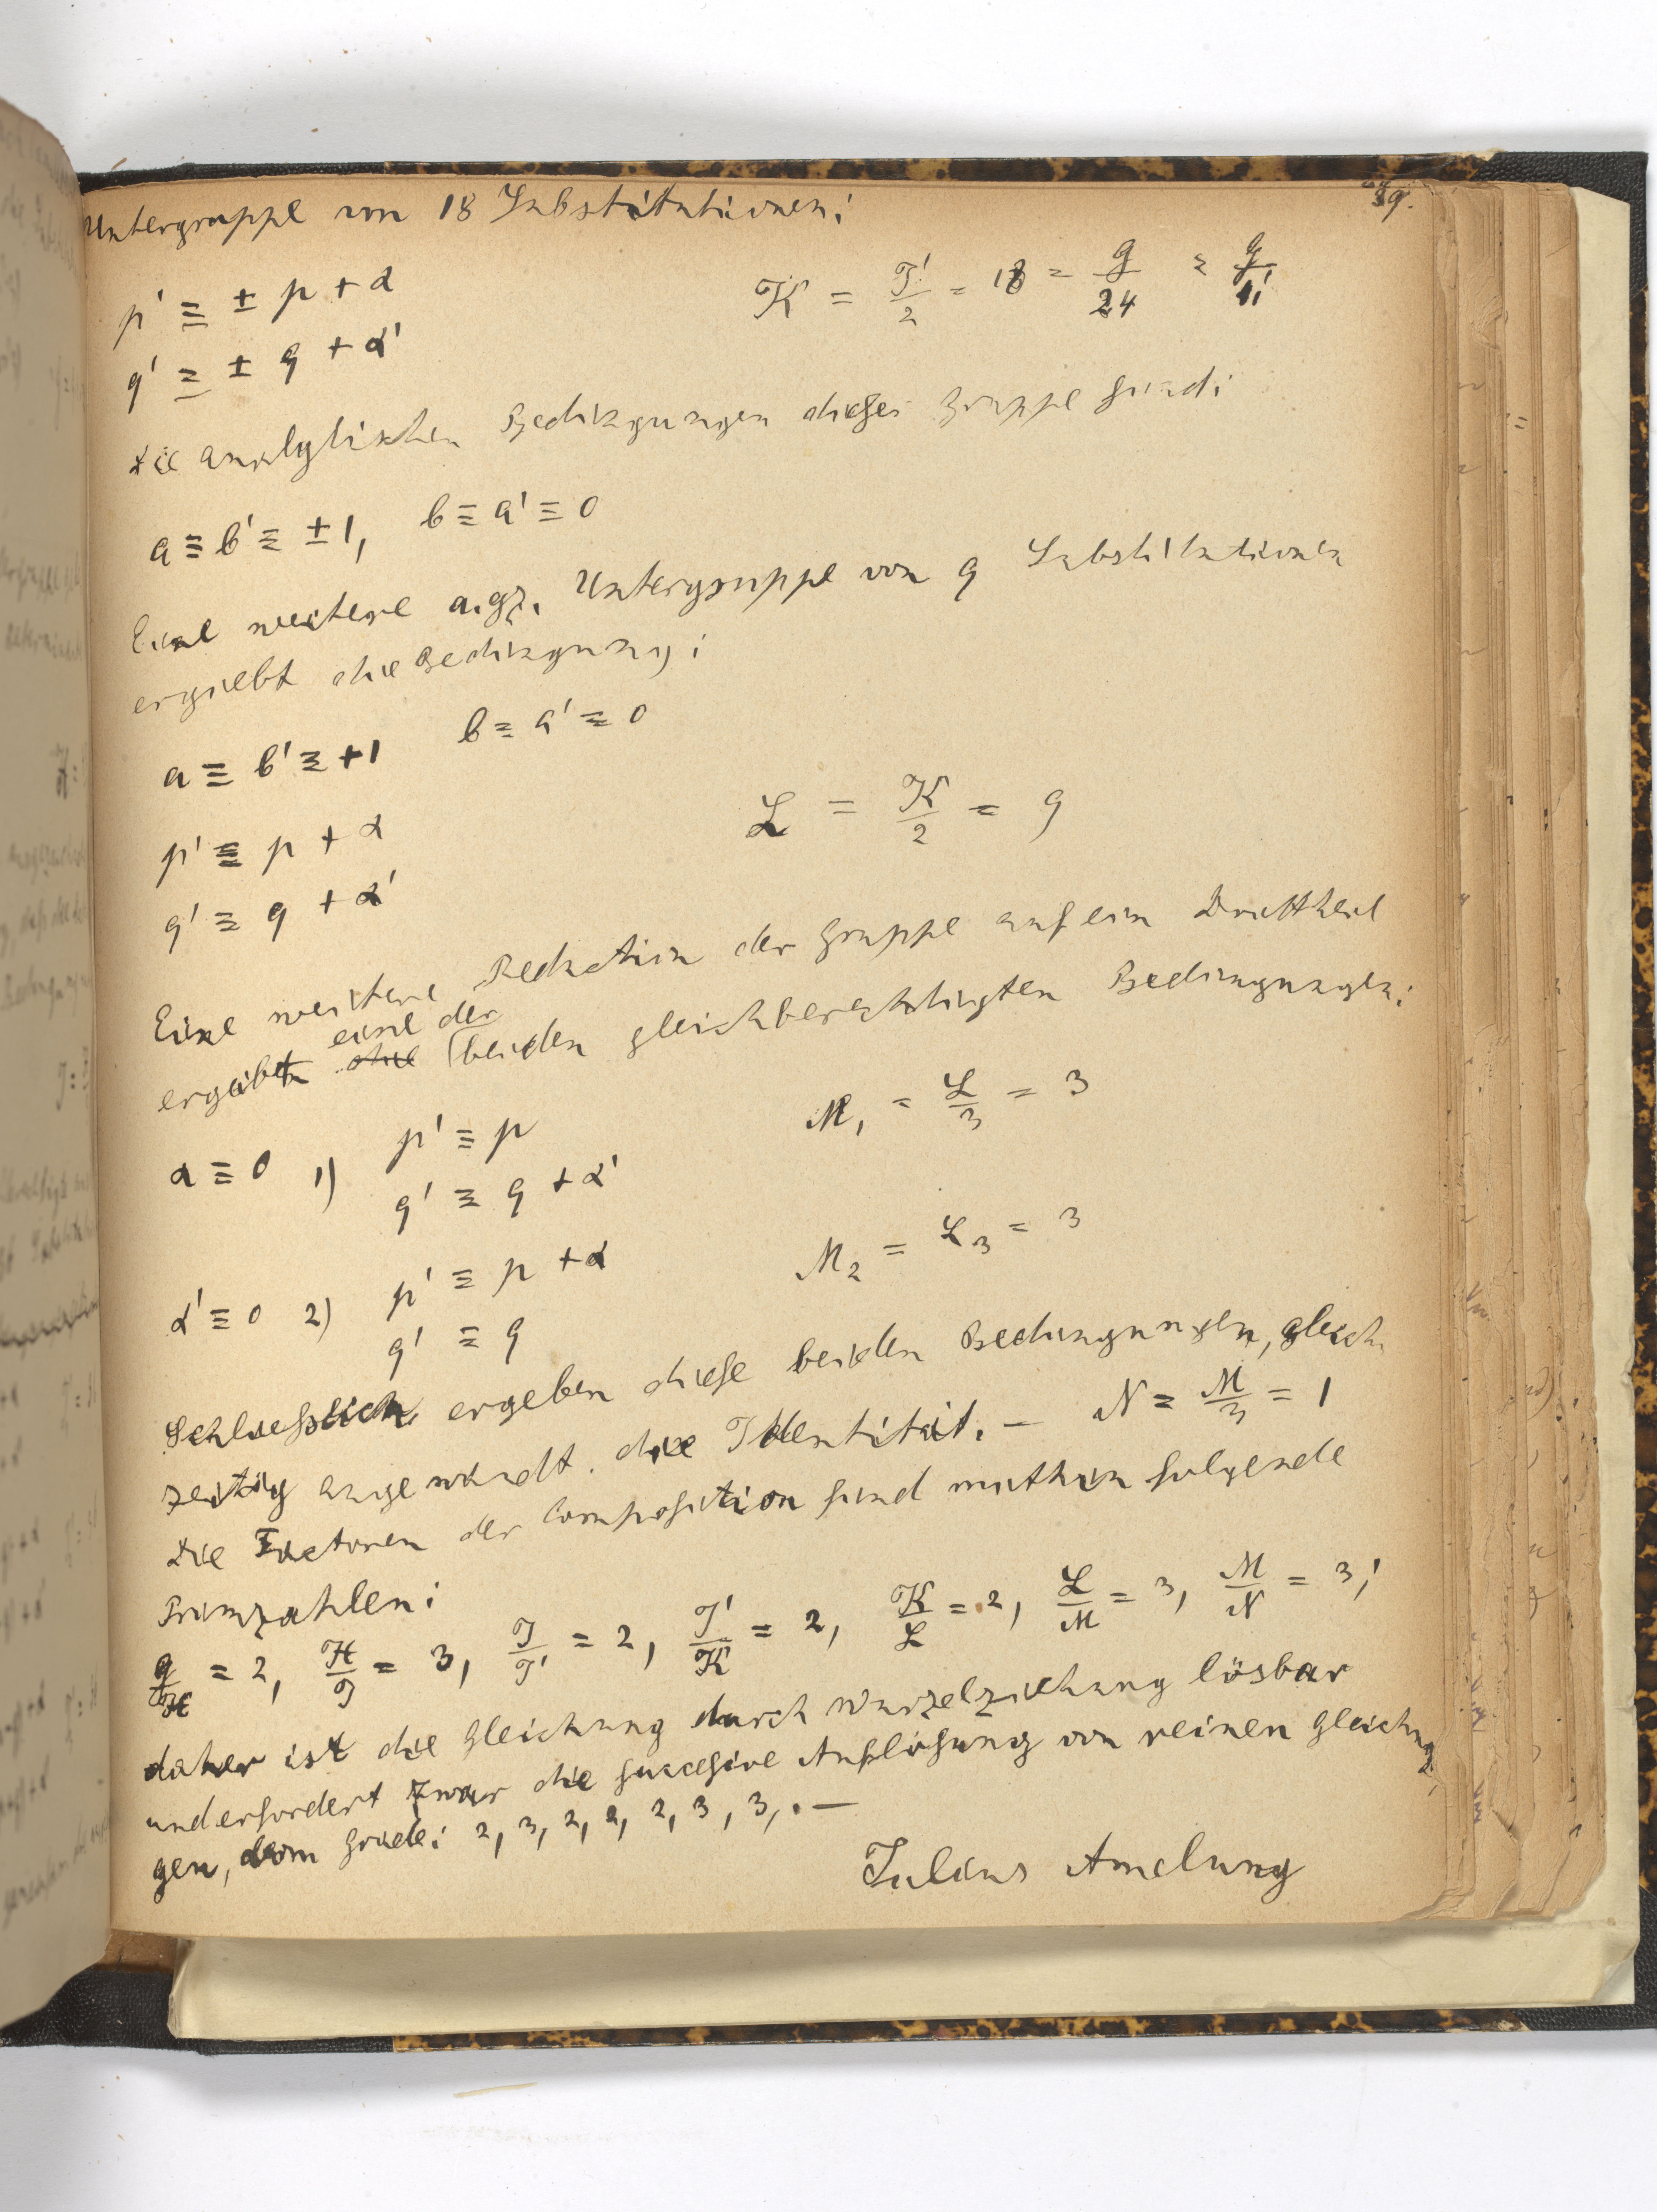 89.
Untergruppe von 18 Substitutionen:
p' ≡ ± p + α
K = J'/2 = 18 = G/24 = G/4!
q' ≡ ± q + α'
Die analytischen Bedingungen dieser Gruppe sind:
a ≡ b' ≡ ±1, b ≡ a' ≡ 0
Eine weitere a.gz. Untergruppe von 9 Substitutionen
ergiebt die Bedingung:
a ≡ b' ≡ +1 b ≡ a' ≡ 0
p' ≡ p + α
L = K/2 = 9
q' ≡ q + α'
Eine weitere Reduction der Gruppe auf ein Drittheil
eine der
ergiebt die beiden gleichberechtigten Bedingungen:
α ≡ 0 1) p' ≡ p
M₁ = L/3 = 3
q' ≡ q + α'
α' ≡ 0 2) p' ≡ p + α
M₂ = L₃ = 3
q' ≡ q
Schliesslich ergeben diese beiden Bedingungen, gleich
zeitig angewandt. die Identität. — N = M/3 = 1
Die Factoren der Composition sind mithin folgende
Primzahlen:
G/H = 2, H/J = 3, J/J' = 2, J'/K = 2, K/L = 2, L/M = 3, M/N = 3;
daher ist die Gleichung durch Wurzelziehung lösbar
und erfordert zwar die successive Auflösung von reinen Gleichun
gen, vom Grade: 2, 3, 2, 2, 2, 3, 3, . —
Julius Amelung